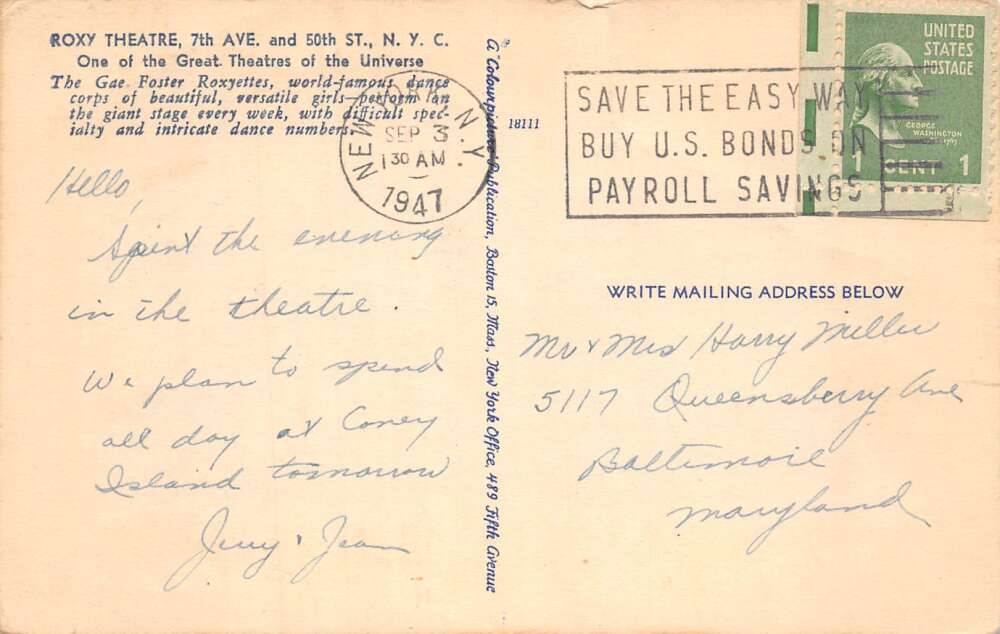 ROXY THEATRE, 7th AVE. and 50th ST., N. Y. C.
One of the Great Theatres of the Universe
The Gae Foster Roxyettes, world-famous dance
corps of beautiful, versatile girls perform on
the giant stage every week, with difficult spec-
ialty and intricate dance numbers.
Hello,
Spent the evening
in the theatre.
We plan to spend
all day at Coney
Island tomorrow
Jerry & Jean
A "Colourpicture" Publication, Boston 15, Mass., New York Office, 489 Fifth Avenue
18111
NEW YORK, N.Y.
SEP 3
1 30 AM
1947
SAVE THE EASY WAY
BUY U.S. BONDS ON
PAYROLL SAVINGS
UNITED
STATES
POSTAGE
GEORGE
WASHINGTON
1 CENT 1
WRITE MAILING ADDRESS BELOW
Mr & Mrs Harry Miller
5117 Queensberry Ave
Baltimore
Maryland